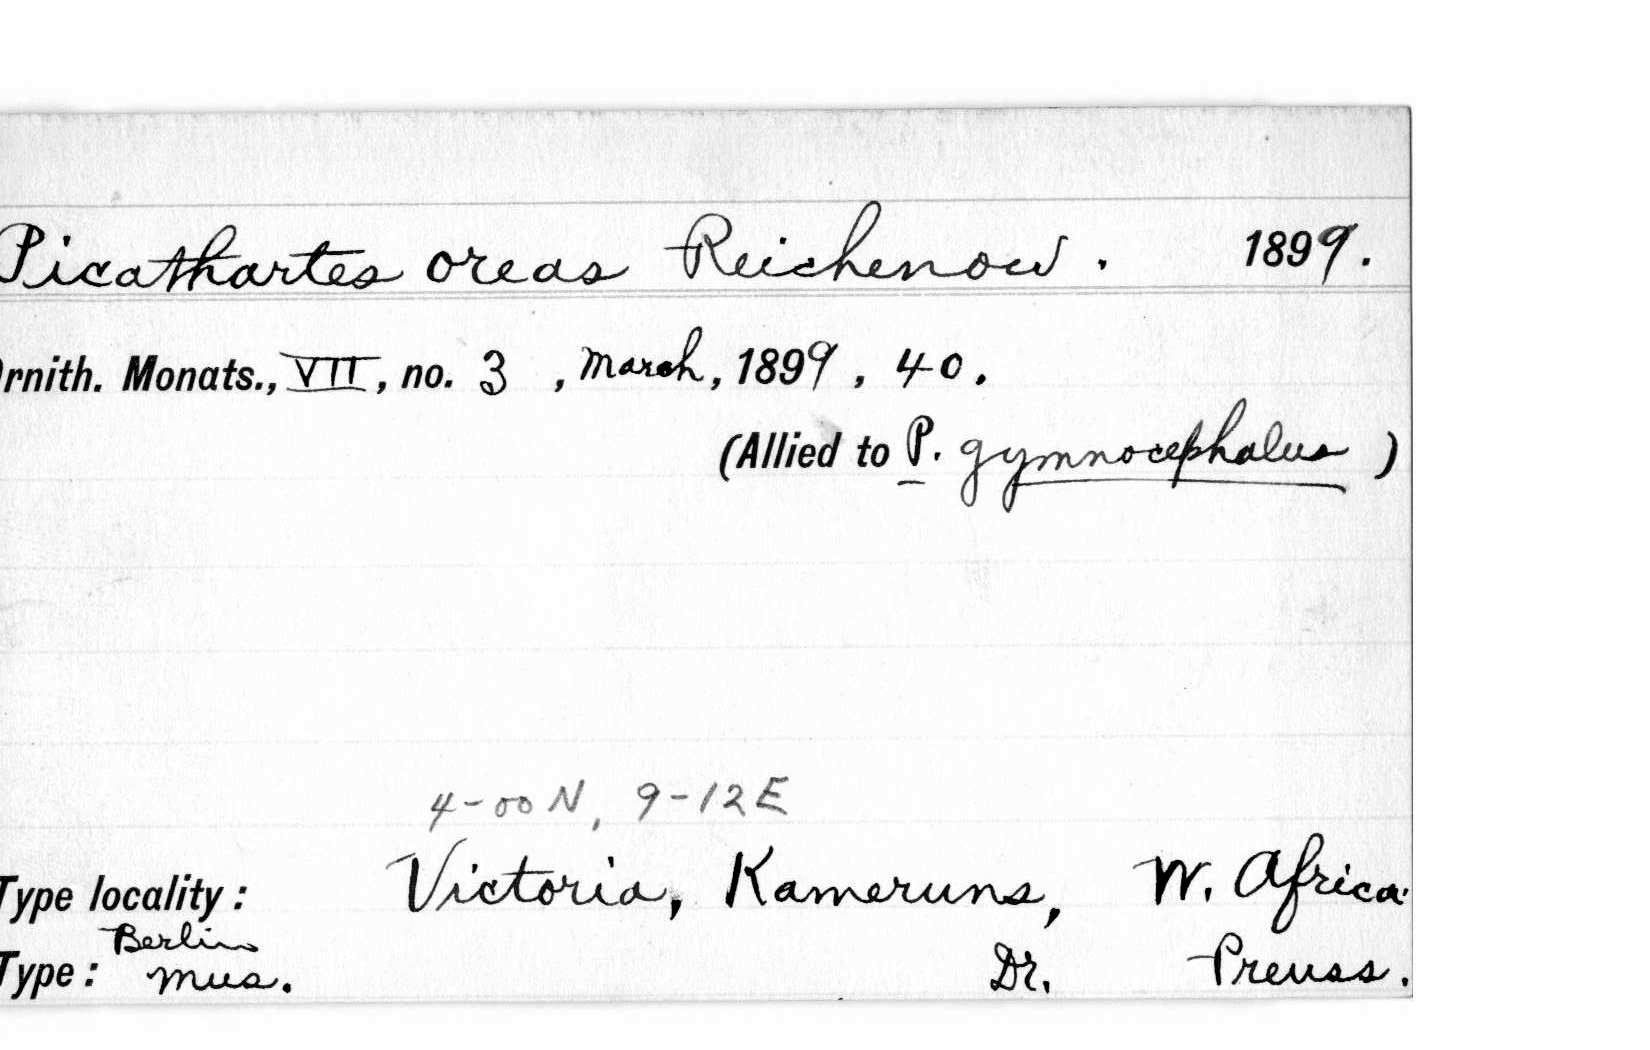 Picathartes oreas Reichenow. 1899.
rnith. Monats., VII, no. 3, March, 1899, 40.
(Allied to P. gymnocephalus)
4-00 N, 9-12 E
Type locality: Victoria, Kameruns, W. Africa.
Berlin
Type: Mus. Dr. Preuss.